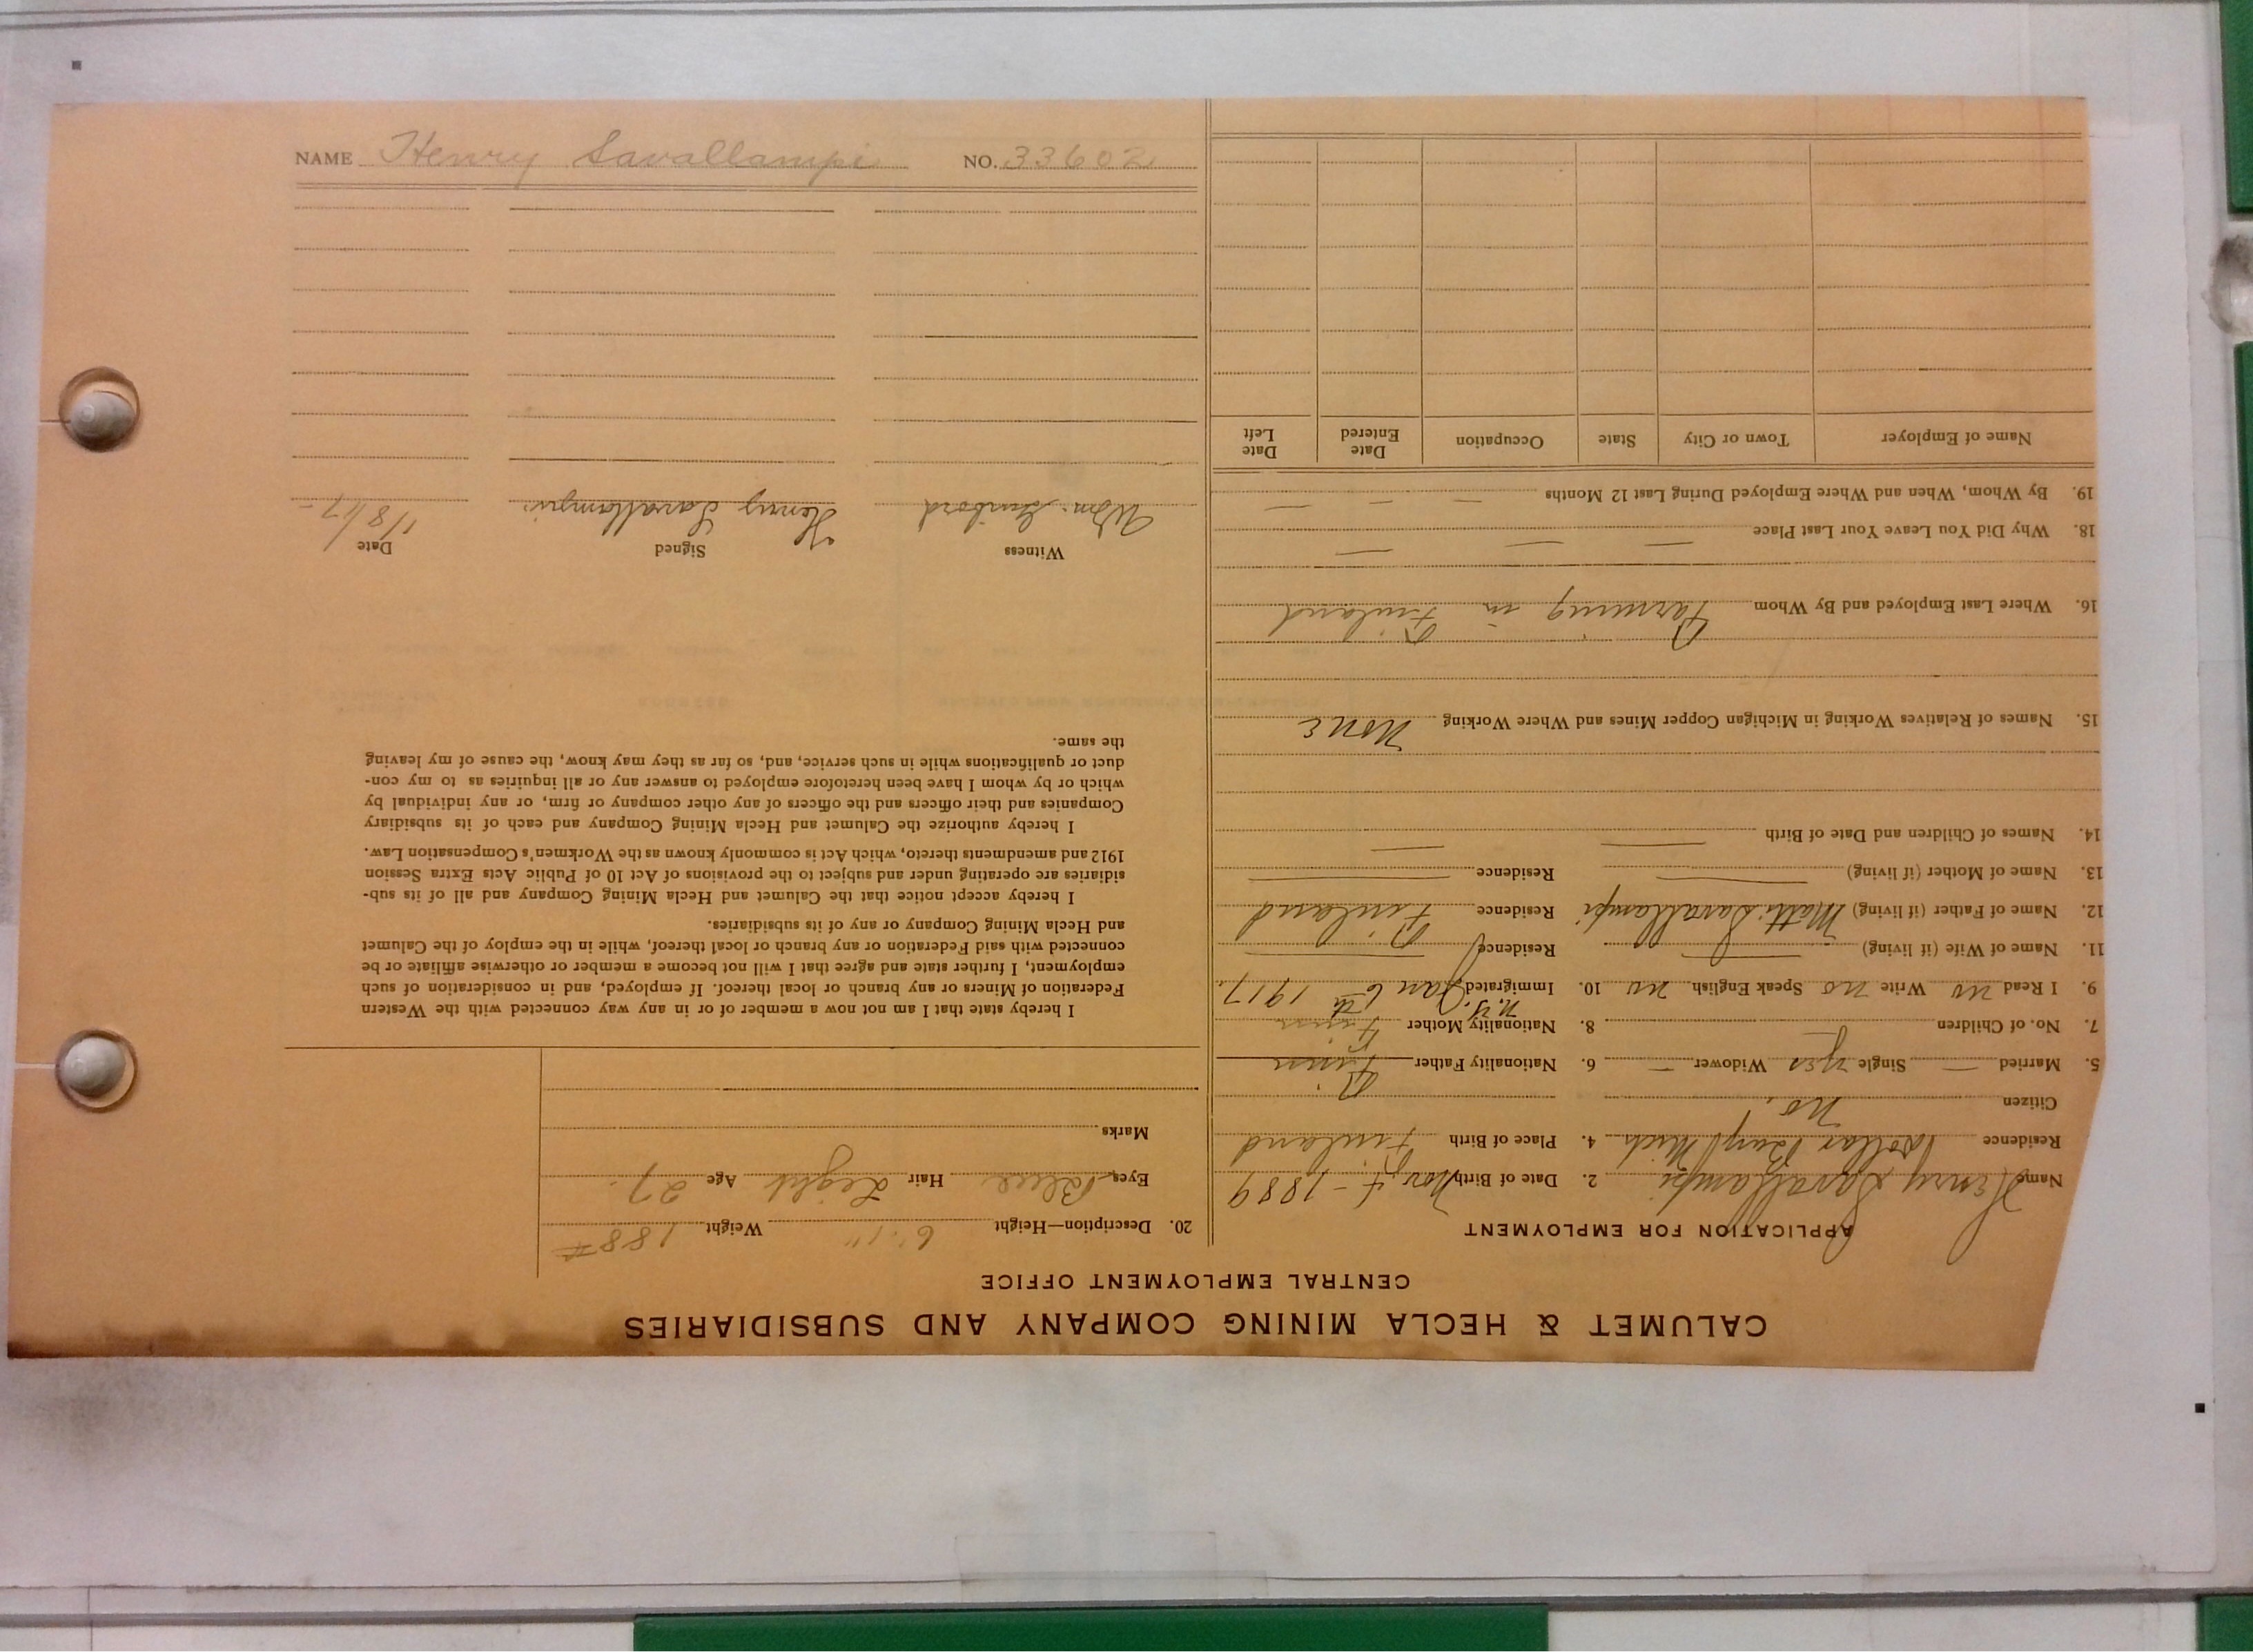 CALUMET & HECLA MINING COMPANY AND SUBSIDIARIES
CENTRAL EMPLOYMENT OFFICE
APPLICATION FOR EMPLOYMENT
Name Henry Savallampi 2. Date of Birth Nov. 1889
Residence Dollar Bay Mich. 4. Place of Birth Finland
Citizen no.
5. Married — Single yes Widower — 6. Nationality Father Finn
7. No. of Children 8. Nationality Mother Finn
9. I Read no Write no Speak English no 10. Immigrated N.Y. Jan 6th 1917.
11. Name of Wife (if living) — Residence —
12. Name of Father (if living) Matti Savallampi Residence Finland
13. Name of Mother (if living) — Residence —
14. Names of Children and Date of Birth — —
15. Names of Relatives Working in Michigan Copper Mines and Where Working none
16. Where Last Employed and By Whom Farming in Finland
18. Why Did You Leave Your Last Place — — —
19. By Whom, When and Where Employed During Last 12 Months — — —
Name of Employer Town or City State Occupation Date Entered Date Left
20. Description—Height 6' 1" Weight 188 #
Eyes Blue Hair Light Age 27.
Marks
I hereby state that I am not now a member of or in any way connected with the Western
Federation of Miners or any branch or local thereof. If employed, and in consideration of such
employment, I further state and agree that I will not become a member or otherwise affiliate or be
connected with said Federation or any branch or local thereof, while in the employ of the Calumet
and Hecla Mining Company or any of its subsidiaries.
I hereby accept notice that the Calumet and Hecla Mining Company and all of its sub-
sidiaries are operating under and subject to the provisions of Act 10 of Public Acts Extra Session
1912 and amendments thereto, which Act is commonly known as the Workmen's Compensation Law.
I hereby authorize the Calumet and Hecla Mining Company and each of its subsidiary
Companies and their officers and the officers of any other company or firm, or any individual by
which or by whom I have been heretofore employed to answer any or all inquiries as to my con-
duct or qualifications while in such service, and, so far as they may know, the cause of my leaving
the same.
Witness Signed Date
Wm. Henry Savallampi 1/8/17-
NAME Henry Savallampi NO. 33602